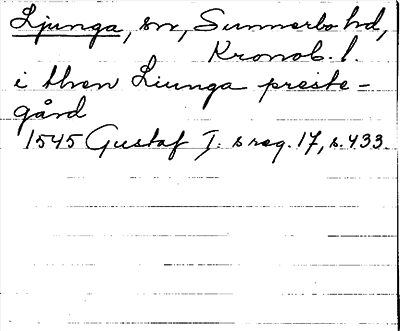 Ljunga, sn, Sunnerbo hd,
Kronob. l.
i then Liunga preste-
gård
1545 Gustaf I:s reg. 17, s. 433.